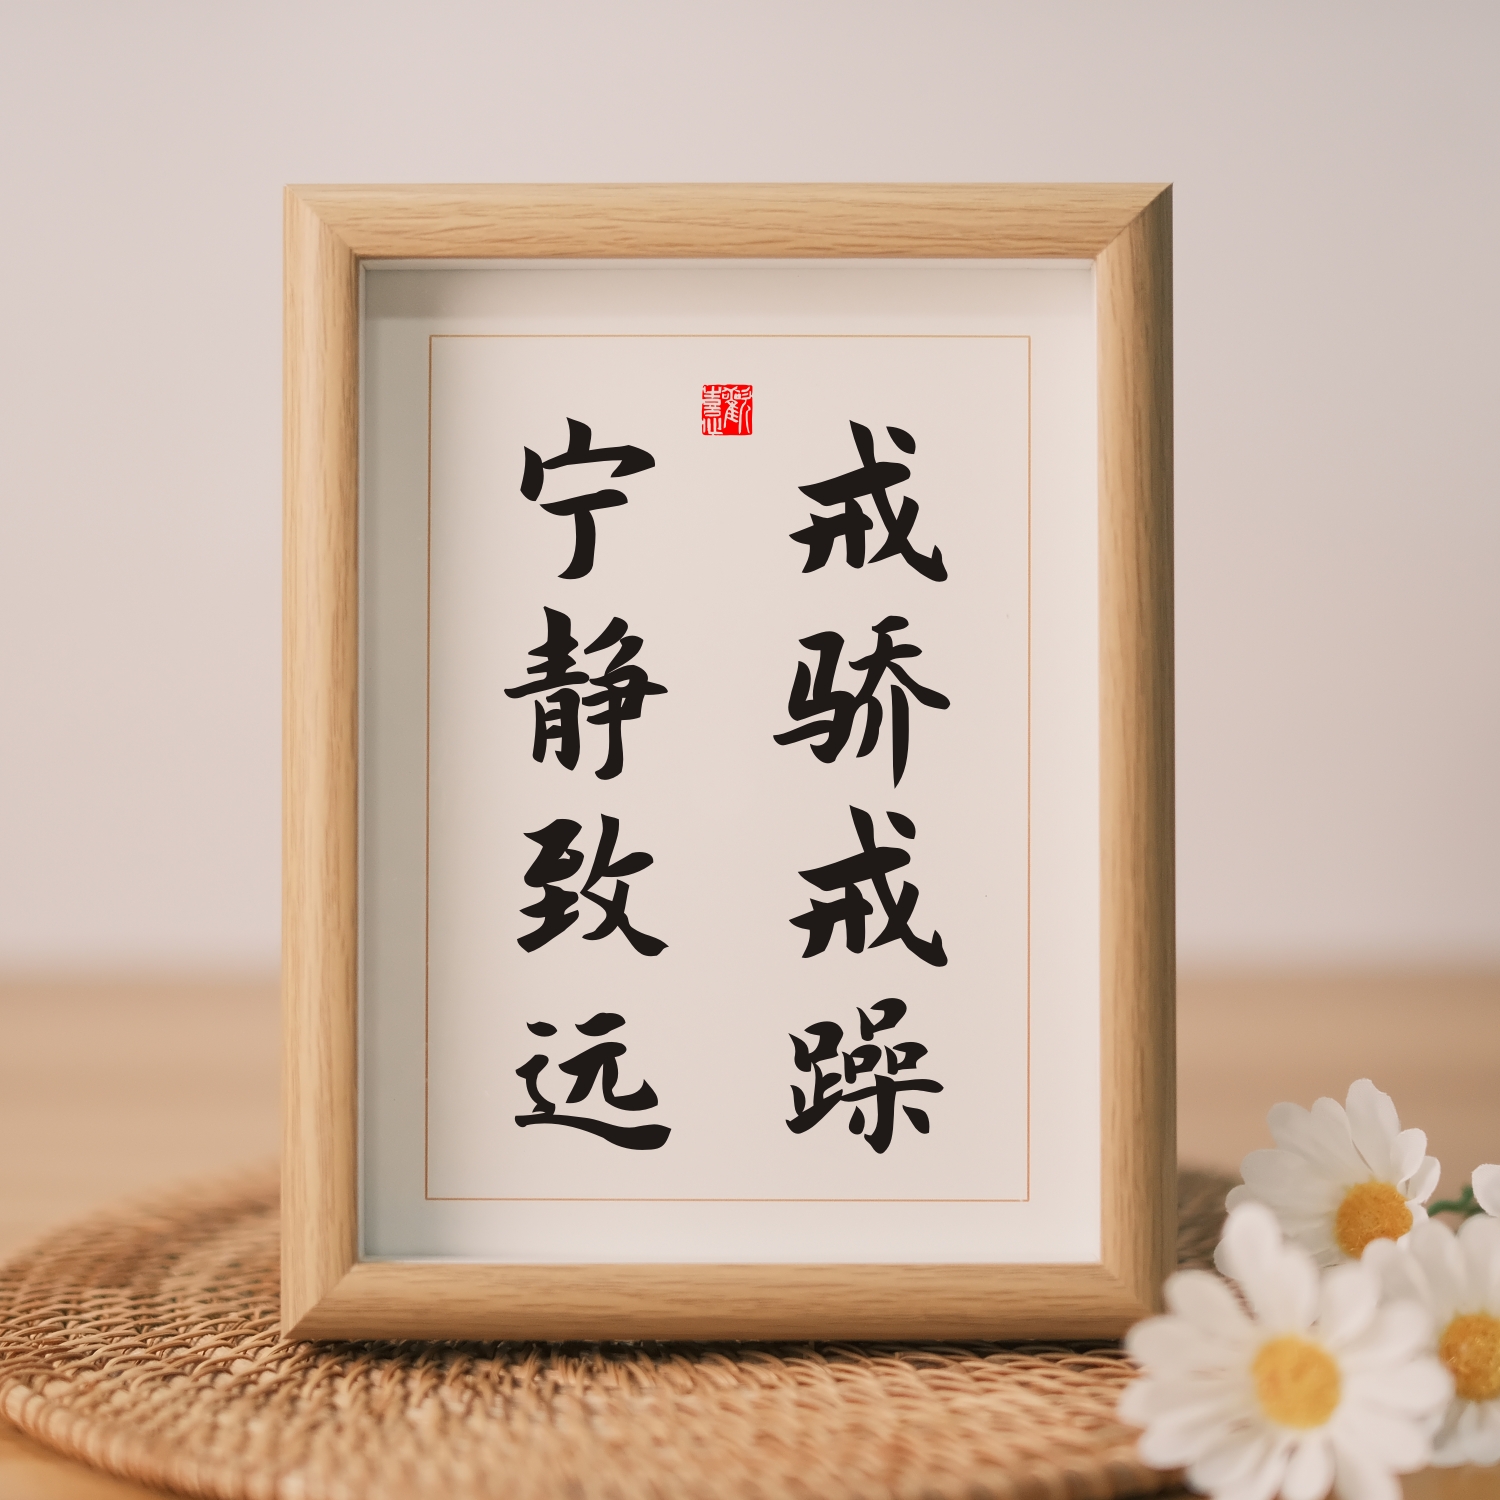 戒骄戒躁
宁静致远